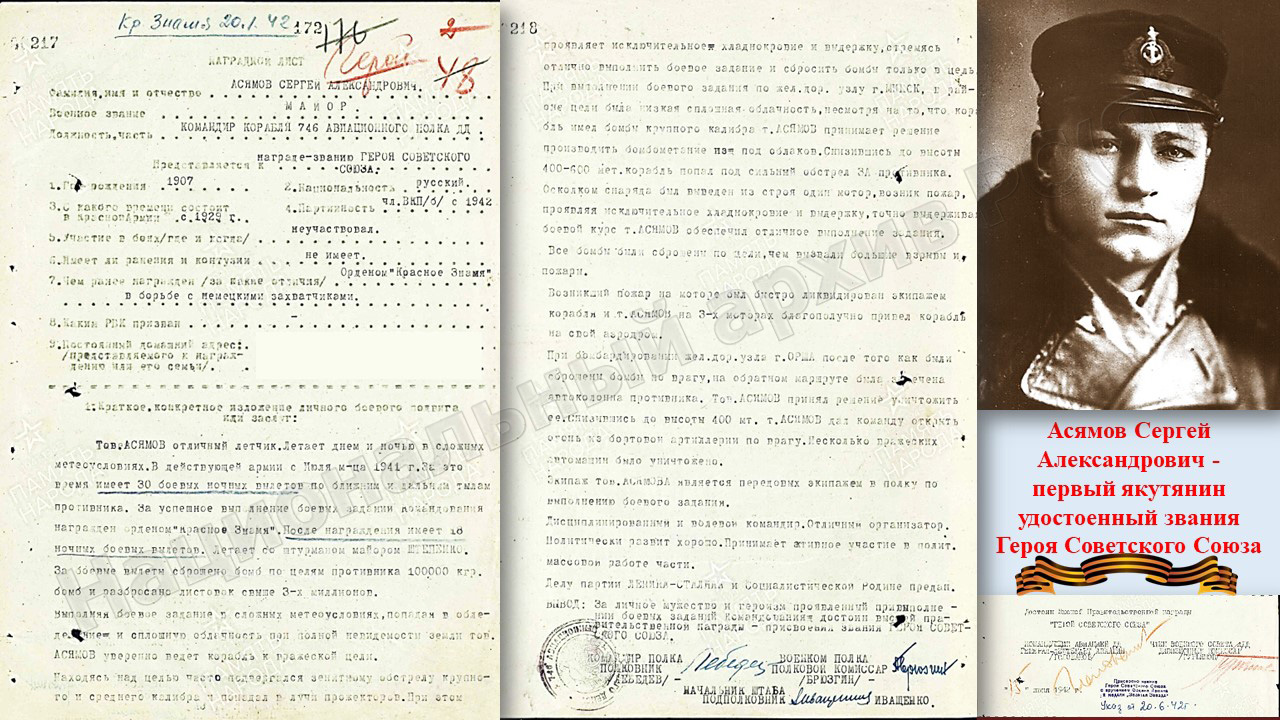 Кр Знамя 20.1.42
172
176
2
217
Герой
48
НАГРАДНОЙ ЛИСТ
Фамилия,имя и отчество АСЯМОВ СЕРГЕЙ АЛЕКСАНДРОВИЧ.
Военное звание МАЙОР.
Должность,часть КОМАНДИР КОРАБЛЯ 746 АВИАЦИОННОГО ПОЛКА ДД
Представляется к награде-званию ГЕРОЯ СОВЕТСКОГО
СОЮЗА.
1.Год рождения 1907 2.Национальность русский.
3.С какого времени состоит
в красной Армии с 1929 г. 4.Партийность чл.ВКП/б/ с 1942
5.Участие в боях/где и когда/ неучаствовал.
6.Имеет ли ранения и контузии не имеет.
7.Чем ранее награжден /за какие отличия/ Орденом"Красное Знамя"
в борьбе с немецкими захватчиками.
8.Каким РВК призван -
9.Постоянный домашний адрес:
/представляемого к награж-
дению или его семьи/.
1.Краткое,конкретное изложение личного боевого подвига
или заслуг:
Тов.АСЯМОВ отличный летчик.Летает днем и ночью в сложных
метеоусловиях.В действующей армии с Июля м-ца 1941 г.За это
время имеет 30 боевых ночных вылетов по ближним и дальним тылам
противника. За успешное выполнение боевых задании командования
награжден орденом"Красное Знамя".После награждения имеет 18
ночных боевых вылетов. Летает со штурманом майором ШТЕПЕНКО.
За боевые вылеты сброшено бомб по целям противника 100000 кгр.
бомб и разбросано листовок свыше 3-х миллионов.
Выполняя боевое задание в сложных метеоусловиях,попадая в обле-
денение и сплошную облачность при полной невидимости земли тов.
АСЯМОВ уверенно ведет корабль к вражеской цели.
Находясь над целью часто подвергался зенитному обстрелу крупно-
го и среднего калибра и попадал в лучи прожекторов,
218
проявляет исключительное хладнокровие и выдержку,стремясь
отлично выполнить боевое задание и сбросить бомбы только в цель.
При выполнении боевого задания по жел.дор. узлу г.МИНСК, в рай-
оне цели была низкая сплошная облачность,несмотря на то,что кора
бль имел бомбы крупного калибра т.АСЯМОВ принимает решение
производить бомбометание из под облаков.Снизившись до высоты
400-600 мет.корабль попал под сильный обстрел ЗА противника.
Осколком снаряда был выведен из строя один мотор,возник пожар,
проявляя исключительное хладнокровие и выдержку,точно выдерживая
боевой курс т.АСЯМОВ обеспечил отличное выполнение задания.
Все бомбы были сброшены по цели,чем вызвали большие взрывы и
пожары.
Возникший пожар на моторе был быстро ликвидирован экипажем
корабля и т.АСЯМОВ на 3-х моторах благополучно привел корабль
на свой аэродром.
При бомбардировании жел.дор.узла г.ОРША после того как были
сброшены бомбы по врагу,на обратном маршруте была замечена
автоколонна противника. Тов.АСЯМОВ принял решение уничтожить
ее.Снизившись до высоты 400 мт. т.АСЯМОВ дал команду открыть
огонь из бортовой артиллерии по врагу.Несколько вражеских
автомашин было уничтожено.
Экипаж тов.АСЯМОВА является передовых экипажем в полку по
выполнению боевого задания.
Дисциплинированный и волевой командир.Отличный организатор.
Политически развит хорошо.Принимает активное участие в полит.
массовой работе части.
Делу партии ЛЕНИНА-СТАЛИНА и Социалистической Родине предан.
ВЫВОД: За личное мужество и героизм проявленный привыполне -
нии боевых заданий командования достоин высшей пра-
вительственной награды - присвоения звания ГЕРОЯ СОВЕТ-
СКОГО СОЮЗА.
КОМАНДИР ПОЛКА ВОЕНКОМ ПОЛКА
КОМИССАР
/ЛЕБЕДЕВ/- /БРЮЗГИН/
НАЧАЛЬНИК ШТАБА
ПОДПОЛКОВНИК ИВАЩЕНКО.
Национальный архив Р
Асямов Сергей
Александрович -
первый якутянин
удостоенный звания
Героя Советского Союза
Достоин Высшей Правительственной награды
"ГЕРОЙ СОВЕТСКОГО СОЮЗА"
15 июня 1942 г.
Присвоено звание
Героя Советского Союза
с вручением Ордена Ленина
и медали „Золотая Звезда"
Указ от 20.6.42г